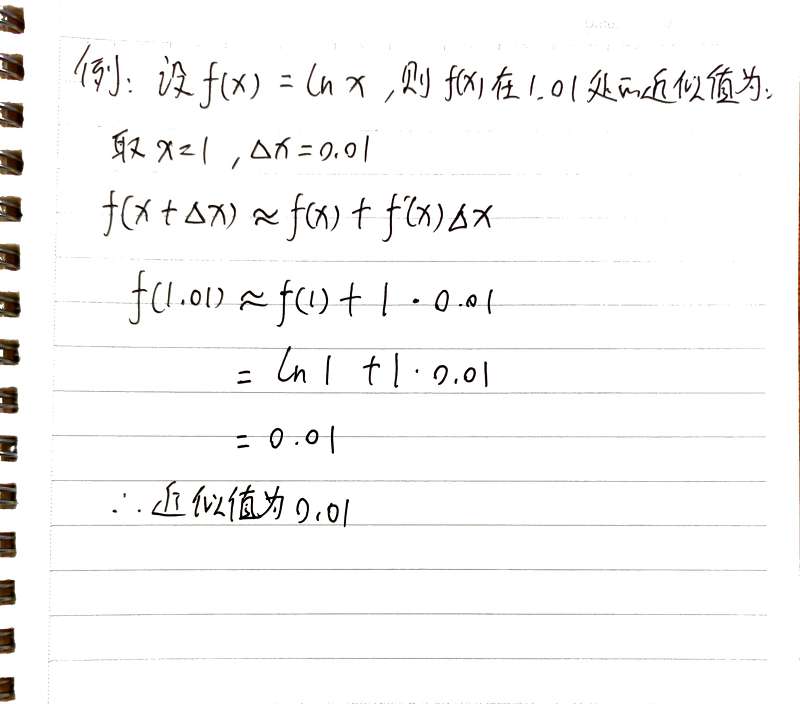 例: 设 f(x) = ln x ,则 f(x) 在 1.01 处的近似值为:
取 x=1 , Δx=0.01
f(x+Δx) ≈ f(x) + f'(x)Δx
f(1.01) ≈ f(1) + 1 · 0.01
= ln 1 + 1 · 0.01
= 0.01
∴ 近似值为 0.01